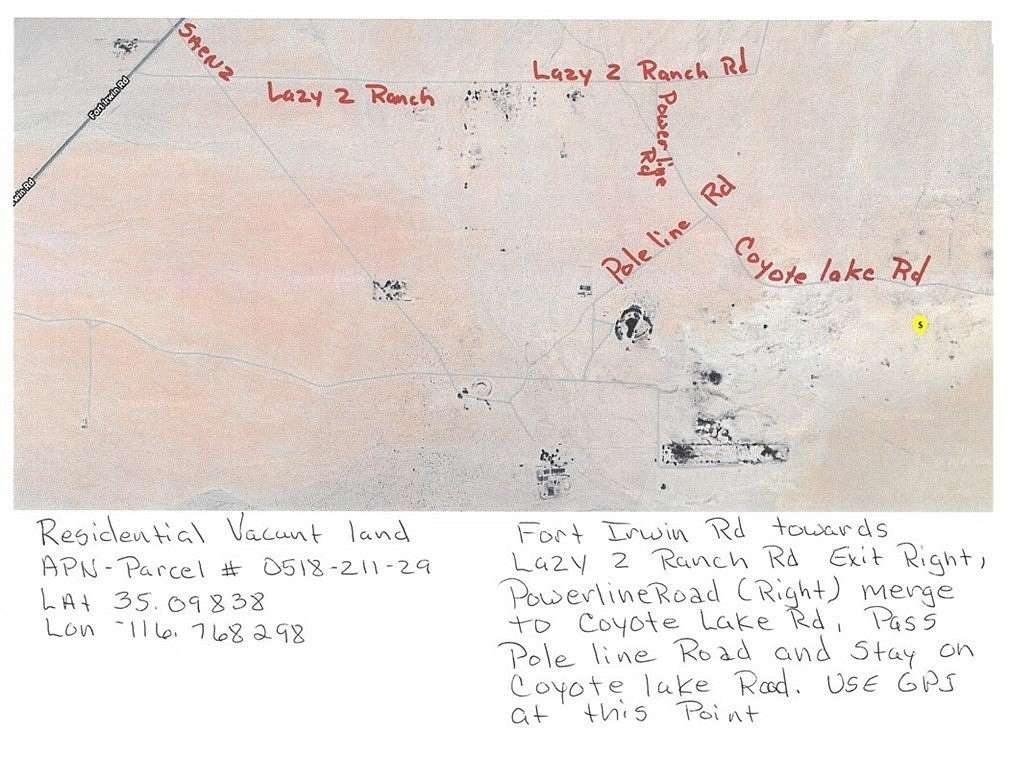 SAENZ
Lazy 2 Ranch Rd
Lazy 2 Ranch
Fort Irwin Rd
Powerline
Rd
win Rd
Rd
Pole line
Coyote lake Rd
S
Residential Vacant land
APN-Parcel # 0518-211-29
LAt 35.09838
Lon -116.768298
Fort Irwin Rd towards
Lazy 2 Ranch Rd Exit Right,
PowerlineRoad (Right) merge
to Coyote Lake Rd, Pass
Pole line Road and Stay on
Coyote lake Road. USE GPS
at this Point